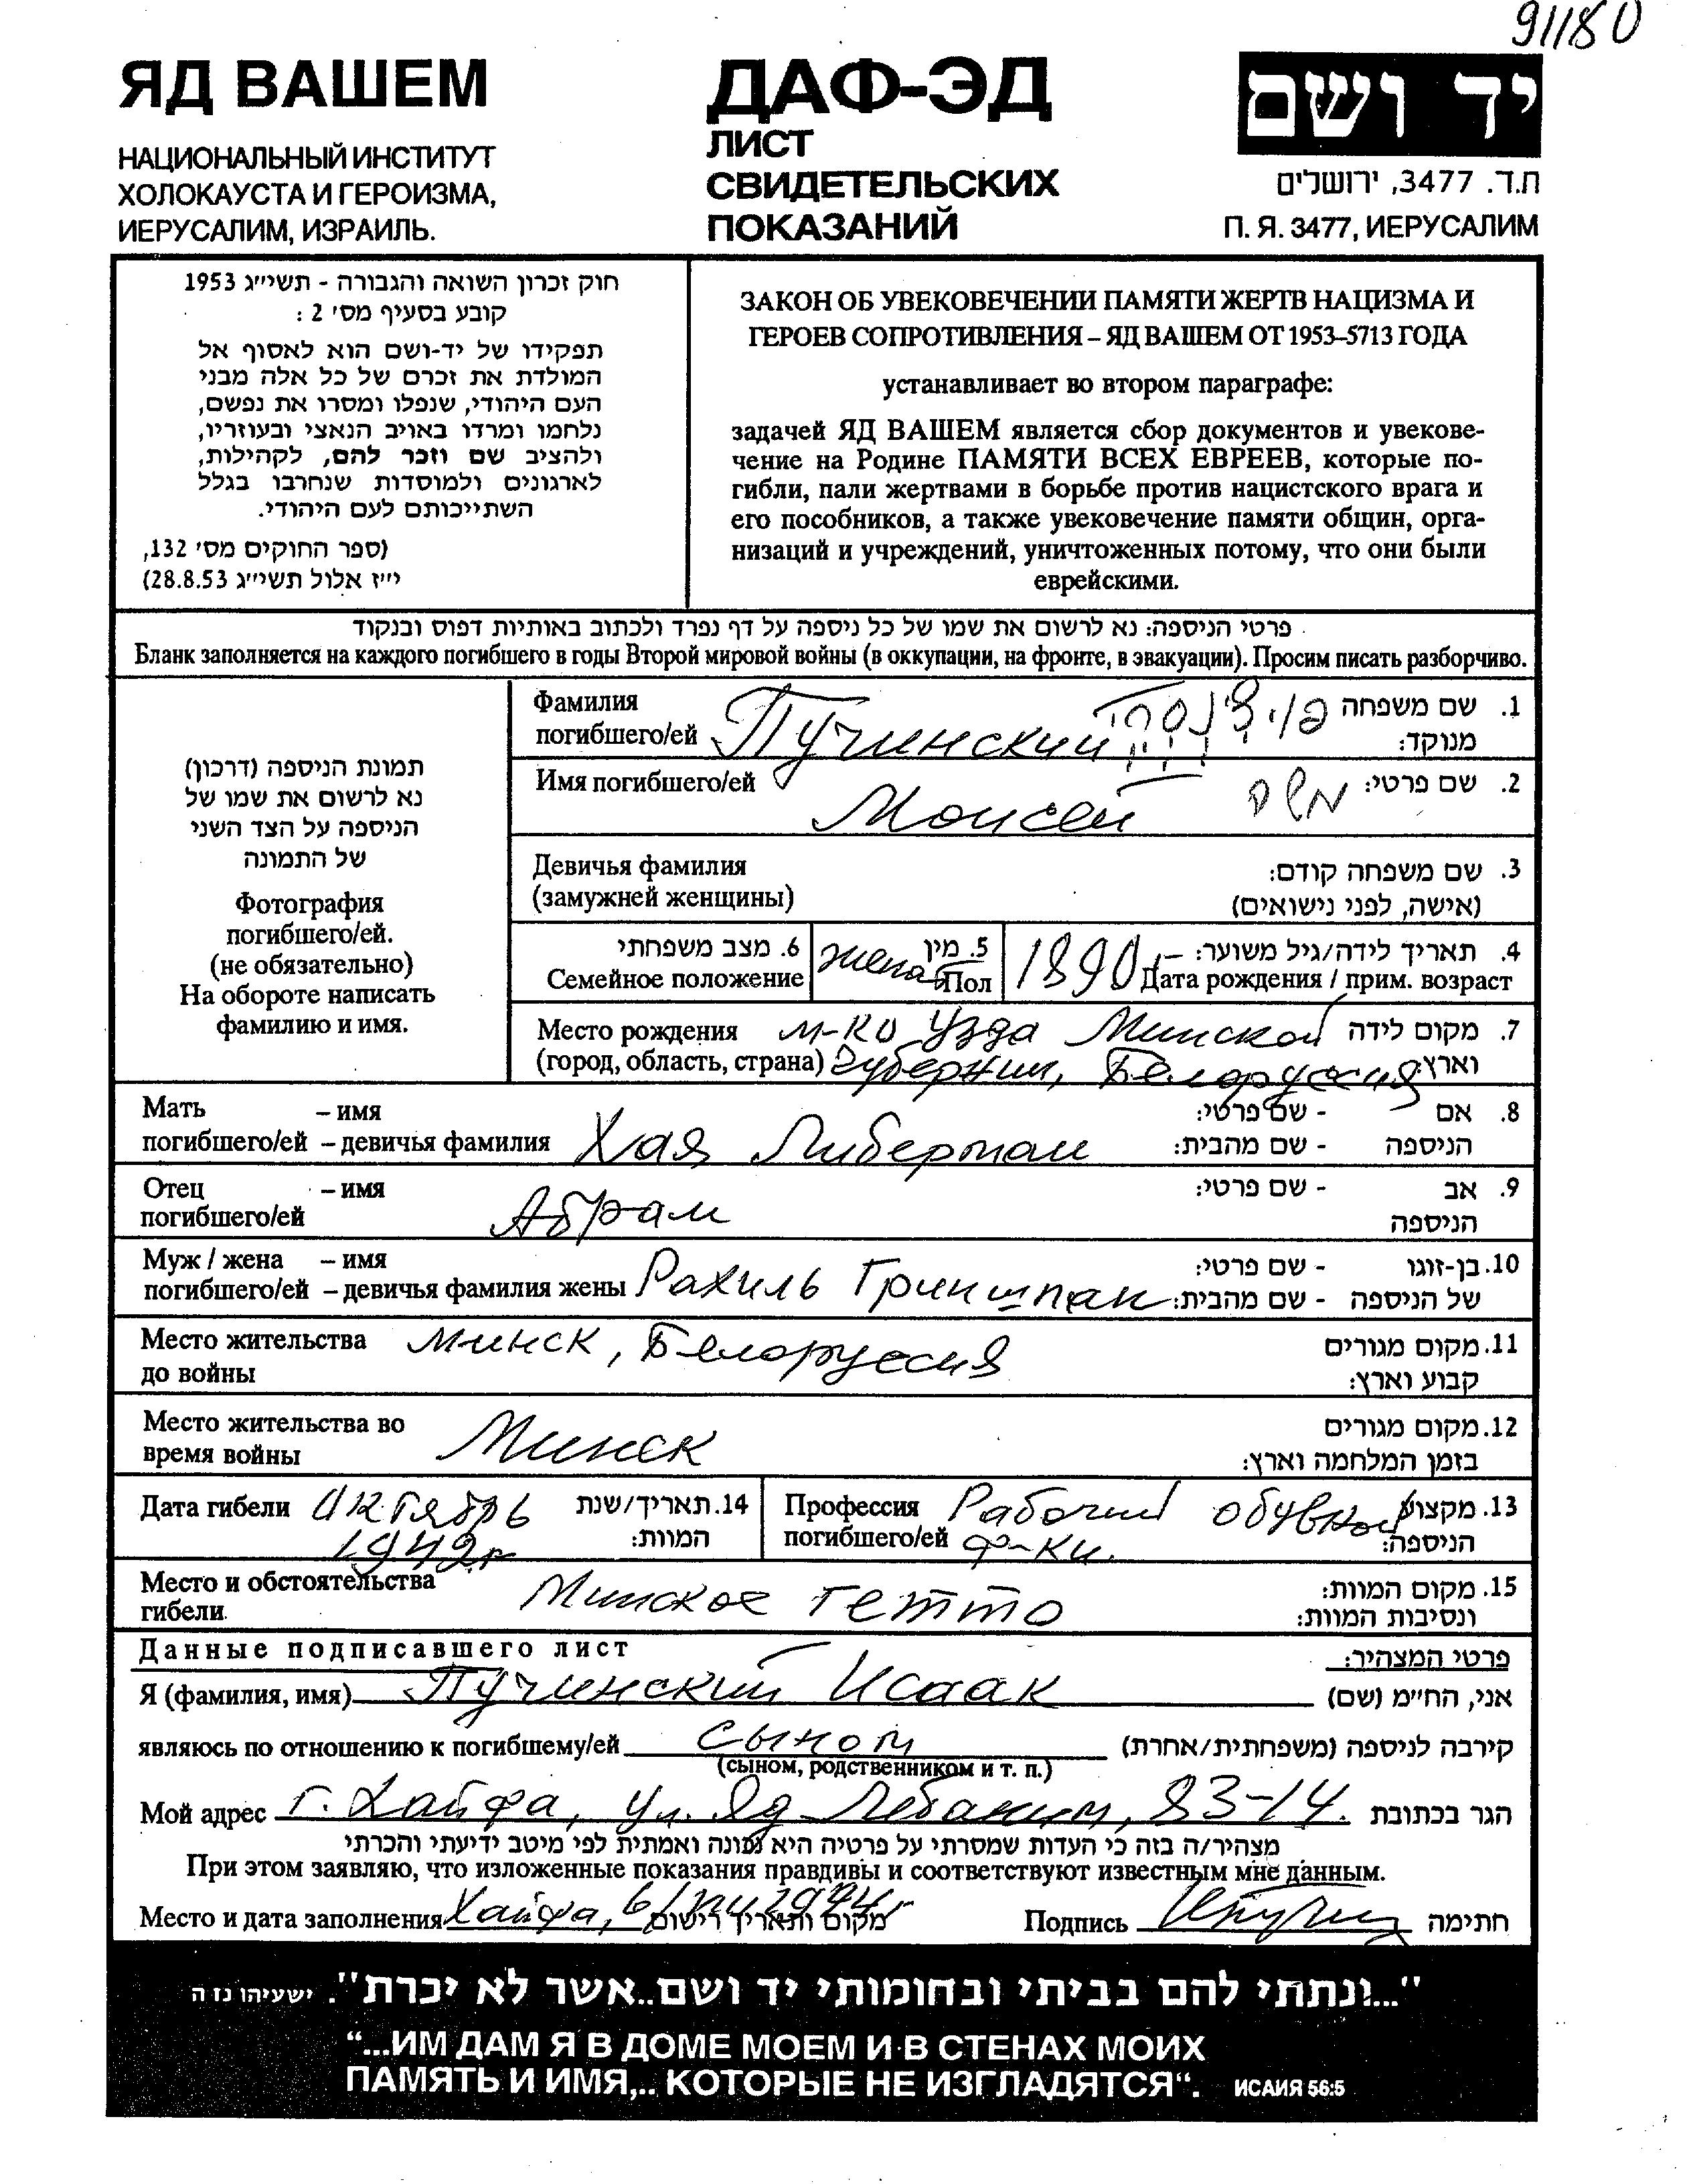 91180
ЯД ВАШЕМ
НАЦИОНАЛЬНЫЙ ИНСТИТУТ
ХОЛОКАУСТА И ГЕРОИЗМА,
ИЕРУСАЛИМ, ИЗРАИЛЬ.
ДАФ-ЭД
ЛИСТ
СВИДЕТЕЛЬСКИХ
ПОКАЗАНИЙ
יד ושם
ת.ד. 3477, ירושלים
П. Я. 3477, ИЕРУСАЛИМ
חוק זכרון השואה והגבורה - תשי״ג 1953
קובע בסעיף מס׳ 2 :
תפקידו של יד-ושם הוא לאסוף אל
המולדת את זכרם של כל אלה מבני
העם היהודי, שנפלו ומסרו את נפשם,
נלחמו ומרדו באויב הנאצי ובעוזריו,
ולהציב שם וזכר להם, לקהילות,
לארגונים ולמוסדות שנחרבו בגלל
השתייכותם לעם היהודי.
(ספר החוקים מס׳ 132,
י״ז אלול תשי״ג 28.8.53)
ЗАКОН ОБ УВЕКОВЕЧЕНИИ ПАМЯТИ ЖЕРТВ НАЦИЗМА И
ГЕРОЕВ СОПРОТИВЛЕНИЯ – ЯД ВАШЕМ ОТ 1953–5713 ГОДА
устанавливает во втором параграфе:
задачей ЯД ВАШЕМ является сбор документов и увекове-
чение на Родине ПАМЯТИ ВСЕХ ЕВРЕЕВ, которые по-
гибли, пали жертвами в борьбе против нацистского врага и
его пособников, а также увековечение памяти общин, орга-
низаций и учреждений, уничтоженных потому, что они были
еврейскими.
פרטי הניספה: נא לרשום את שמו של כל ניספה על דף נפרד ולכתוב באותיות דפוס ובנקוד
Бланк заполняется на каждого погибшего в годы Второй мировой войны (в оккупации, на фронте, в эвакуации). Просим писать разборчиво.
תמונת הניספה (דרכון)
נא לרשום את שמו של
הניספה על הצד השני
של התמונה
Фотография
погибшего/ей.
(не обязательно)
На обороте написать
фамилию и имя.
Фамилия
погибшего/ей Пучинский
1. שם משפחה
מנוקד:
Имя погибшего/ей Моисей משה
2. שם פרטי:
Девичья фамилия
(замужней женщины)
3. שם משפחה קודם:
(אישה, לפני נישואים)
6. מצב משפחתי
Семейное положение
5. מין
Пол
женат
1890
4. תאריך לידה/גיל משוער:
Дата рождения / прим. возраст
Место рождения м-ко Узда Минской
(город, область, страна) губернии, Белоруссия
7. מקום לידה
וארץ:
Мать – имя
погибшего/ей – девичья фамилия Хая Либерман
8. אם - שם פרטי:
הניספה - שם מהבית:
Отец – имя
погибшего/ей Абрам
9. אב - שם פרטי:
הניספה
Муж / жена – имя
погибшего/ей – девичья фамилия жены Рахиль Гриншпан
10. בן-זוגו - שם פרטי:
של הניספה - שם מהבית:
Место жительства
до войны Минск, Белоруссия
11. מקום מגורים
קבוע וארץ:
Место жительства во
время войны Минск
12. מקום מגורים
בזמן המלחמה וארץ:
Дата гибели Октябрь
1942 г
14. תאריך/שנת
המוות:
Профессия Рабочий обувной
погибшего/ей ф-ки.
13. מקצוע
הניספה:
Место и обстоятельства
гибели. Минское гетто
15. מקום המוות:
ונסיבות המוות:
Данные подписавшего лист
פרטי המצהיר:
Я (фамилия, имя) Пучинский Исаак אני, הח״מ (שם)
являюсь по отношению к погибшему/ей сыном קירבה לניספה (משפחתית/אחרת)
(сыном, родственником и т. п.)
Мой адрес г. Хайфа, ул. Яд Лебаним, 83-14. הגר בכתובת
מצהיר/ה בזה כי העדות שמסרתי על פרטיה היא נכונה ואמתית לפי מיטב ידיעתי והכרתי
При этом заявляю, что изложенные показания правдивы и соответствуют известным мне данным.
Место и дата заполнения Хайфа, 6/ מקום ותאריך רישום Подпись חתימה
"...ונתתי להם בביתי ובחומותי יד ושם..אשר לא יכרת". ישעיהו נז ה
“...ИМ ДАМ Я В ДОМЕ МОЕМ И В СТЕНАХ МОИХ
ПАМЯТЬ И ИМЯ,.. КОТОРЫЕ НЕ ИЗГЛАДЯТСЯ“. ИСАИЯ 56:5